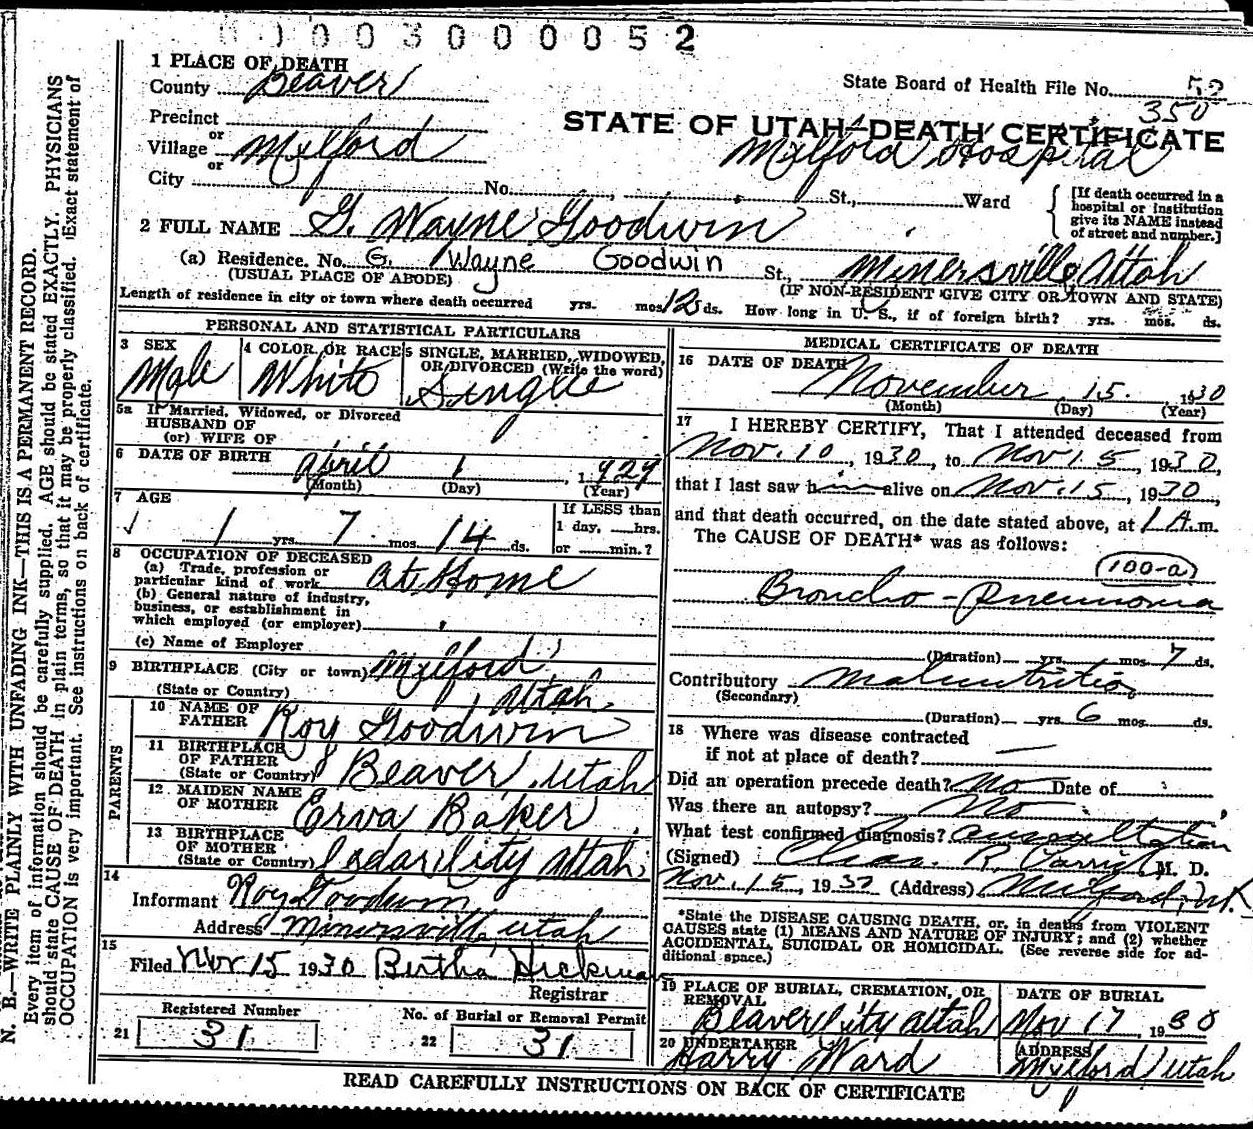 0 0 0 3 0 0 0 0 5 2
1 PLACE OF DEATH
County Beaver
State Board of Health File No. 52
350
Precinct
STATE OF UTAH—DEATH CERTIFICATE
or
Village Milford
Milford Hospital
or
City No. St., Ward
[If death occurred in a
hospital or institution
give its NAME instead
of street and number.]
2 FULL NAME G. Wayne Goodwin
(a) Residence. No. G. Wayne Goodwin St., Minersville, Utah
(USUAL PLACE OF ABODE)
(IF NON-RESIDENT GIVE CITY OR TOWN AND STATE)
Length of residence in city or town where death occurred yrs. mos. 12 ds. How long in U. S., if of foreign birth? yrs. mos. ds.
PERSONAL AND STATISTICAL PARTICULARS
3 SEX
Male
4 COLOR OR RACE
White
5 SINGLE, MARRIED, WIDOWED,
OR DIVORCED (Write the word)
Single
5a If Married, Widowed, or Divorced
HUSBAND OF
(or) WIFE OF
6 DATE OF BIRTH
April 1, 1929
(Month) (Day) (Year)
7 AGE
1 yrs. 7 mos. 14 ds.
If LESS than
1 day, hrs.
or min.?
8 OCCUPATION OF DECEASED
(a) Trade, profession or
particular kind of work At Home
(b) General nature of industry,
business, or establishment in
which employed (or employer)
(c) Name of Employer
9 BIRTHPLACE (City or town) Milford
(State or Country) Utah
PARENTS
10 NAME OF
FATHER Roy Goodwin
11 BIRTHPLACE
OF FATHER
(State or Country) Beaver, Utah
12 MAIDEN NAME
OF MOTHER Erva Baker
13 BIRTHPLACE
OF MOTHER
(State or Country) Cedar City Utah
14
Informant Roy Goodwin
Address Minersville Utah
15
Filed Nov 15 1930 Bertha Hickman
Registrar
Registered Number
21 31
No. of Burial or Removal Permit
22 31
MEDICAL CERTIFICATE OF DEATH
16 DATE OF DEATH
November 15, 1930
(Month) (Day) (Year)
17 I HEREBY CERTIFY, That I attended deceased from
Nov. 10, 1930, to Nov 15, 1930,
that I last saw him alive on Nov. 15, 1930,
and that death occurred, on the date stated above, at 1 A.m.
The CAUSE OF DEATH* was as follows:
(100-a)
Broncho-pneumonia
(Duration) yrs. mos. 7 ds.
Contributory Malnutrition
(Secondary)
(Duration) yrs. 6 mos. ds.
18 Where was disease contracted
if not at place of death? —
Did an operation precede death? No Date of
Was there an autopsy? No
What test confirmed diagnosis? Auscultation
(Signed) Chas. R. M. D.
Nov. 15, 1930 (Address) Milford, Ut.
*State the DISEASE CAUSING DEATH, or, in deaths from VIOLENT
CAUSES state (1) MEANS AND NATURE OF INJURY; and (2) whether
ACCIDENTAL, SUICIDAL OR HOMICIDAL. (See reverse side for ad-
ditional space.)
19 PLACE OF BURIAL, CREMATION, OR
REMOVAL
Beaver City Utah
DATE OF BURIAL
Nov 17, 1930
20 UNDERTAKER
Harry Ward
ADDRESS
Milford, Utah
READ CAREFULLY INSTRUCTIONS ON BACK OF CERTIFICATE
N. B.—WRITE PLAINLY WITH UNFADING INK—THIS IS A PERMANENT RECORD.
Every item of information should be carefully supplied. AGE should be stated EXACTLY. PHYSICIANS
should state CAUSE OF DEATH in plain terms, so that it may be properly classified. Exact statement of
OCCUPATION is very important. See instructions on back of certificate.